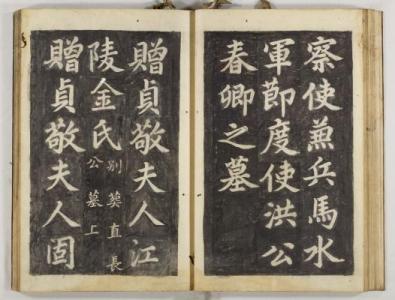 察使兼兵馬水
軍節度使洪公
春卿之墓
贈貞敬夫人江
陵金氏別葬直長
公墓上
贈貞敬夫人固